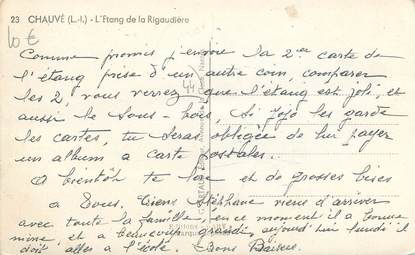 23 CHAUVÉ (L.-I.) - L'Etang de la Rigaudière
10 €
44
Comme promis j'envoie la 2ème carte de
l'étang prise d'un autre coin, comparer
les 2, vous verrez que l'étang est joli, et
aussi le sous-bois, si Jojo les garde
les cartes, tu seras obligée de lui payer
un album a carte postales.
A bientôt te lire et de grosses bises
a Tous. Tiens Stéphane viens d'arriver
avec toute la famille, en ce moment il a bonne
mine, et a beaucoup grandi, aujourd'hui lundi il
doit aller a l'école. Bons Baisers